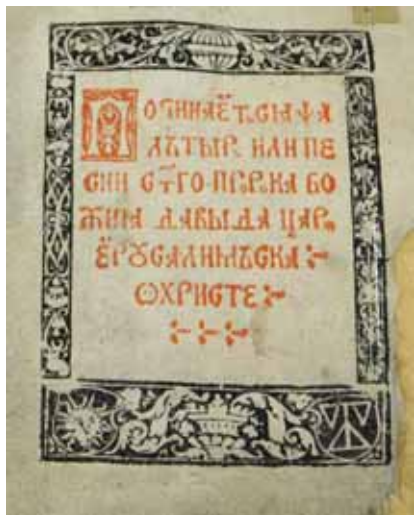 Почннае́тсѧ ѱа
лътыр или пе
сни ст҃го пр҃рка бо
жиꙗ давыда цар,
е́русалимъска :~
ѡхристе :~